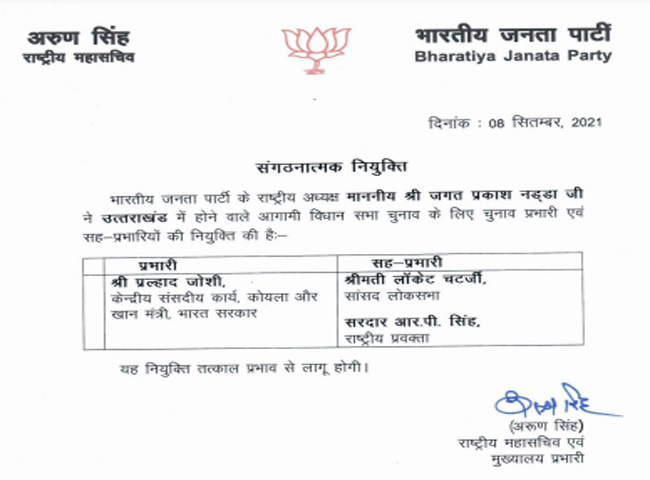 अरुण सिंह
राष्ट्रीय महासचिव
भारतीय जनता पार्टी
Bharatiya Janata Party
दिनांक : 08 सितम्बर, 2021
संगठनात्मक नियुक्ति
भारतीय जनता पार्टी के राष्ट्रीय अध्यक्ष माननीय श्री जगत प्रकाश नड्डा जी
ने उत्तराखंड में होने वाले आगामी विधान सभा चुनाव के लिए चुनाव प्रभारी एवं
सह–प्रभारियों की नियुक्ति की हैः–
प्रभारी
श्री प्रल्हाद जोशी,
केन्द्रीय संसदीय कार्य, कोयला और
खान मंत्री, भारत सरकार
सह–प्रभारी
श्रीमती लॉकेट चटर्जी,
सांसद लोकसभा
सरदार आर.पी. सिंह,
राष्ट्रीय प्रवक्ता
यह नियुक्ति तत्काल प्रभाव से लागू होगी।
(अरूण सिंह)
राष्ट्रीय महासचिव एवं
मुख्यालय प्रभारी